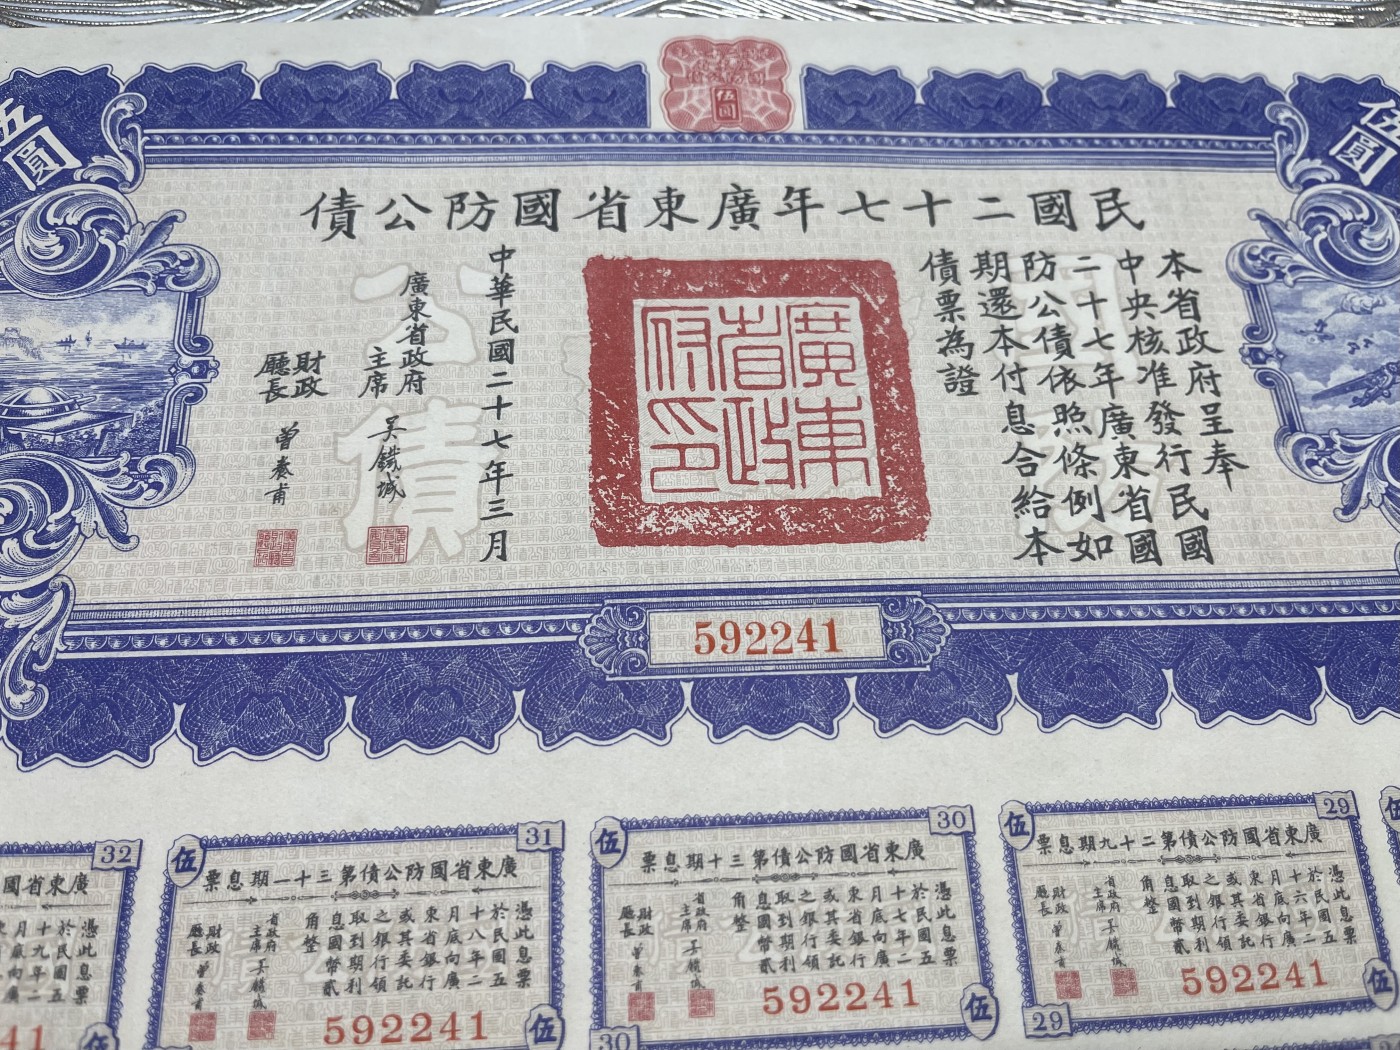 伍圓
伍圓
伍圓
民國二十七年廣東省國防公債
本省政府呈奉
中央核准發行民國
二十七年廣東省國
防公債依照條例如
期還本付息合給本
債票為證
廣東省政府印
中華民國二十七年三月
廣東省政府
主席 吳鐵城
財政
廳長 曾養甫
公債
592241
29
伍
廣東省國防公債第二十九期息票
憑此息票
於民國五
十六年二
月底向廣
東省銀行
或其委託
之銀行領
取到期利
息國幣貳
角整
省政府
主席 吳鐵城
財政
廳長 曾養甫
592241
29
伍
30
伍
廣東省國防公債第三十期息票
憑此息票
於民國五
十七年二
月底向廣
東省銀行
或其委託
之銀行領
取到期利
息國幣貳
角整
省政府
主席 吳鐵城
財政
廳長 曾養甫
592241
30
伍
31
伍
廣東省國防公債第三十一期息票
憑此息票
於民國五
十八年二
月底向廣
東省銀行
或其委託
之銀行領
取到期利
息國幣貳
角整
省政府
主席 吳鐵城
財政
廳長 曾養甫
592241
伍
32
廣東省國
憑此息票
於民國五
十九年二
月底向廣
41
伍